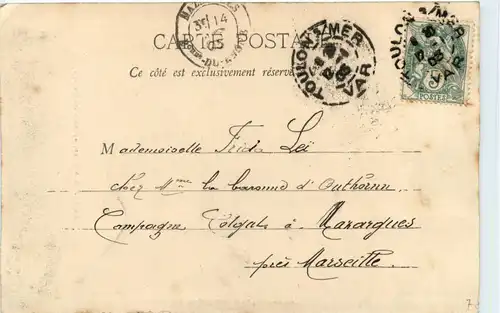 MAZ
14
03
DU-RHONE
CARTE POSTA
TOULON S/MER
VAR
TOULON S/MER
VAR
5
POSTES
Ce côté est exclusivement réservé
Mademoiselle Frida Lei
chez Mme la baronne d'
Campagne Talgal à Mazargues
près Marseille
7